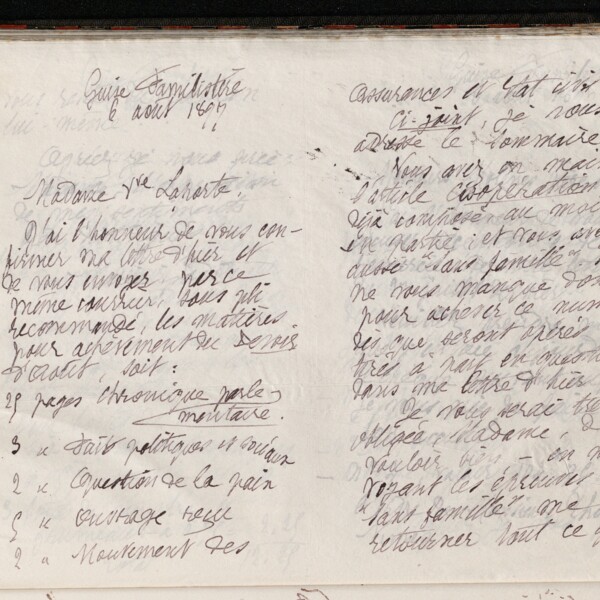 Guise Familistère
6 août 1897
Madame Vve Laporte,
J'ai l'honneur de vous con-
firmer ma lettre d'hier et
de vous envoyer par ce
même courrier, sous pli
recommandé, les matières
pour achèvement du Devoir
d'août, soit :
25 pages chronique parle-
mentaire.
3 " Faits politiques et sociaux
2 " Question de la paix
5 " ouvrage reçu
2 " Mouvement des
assurances et État civil
Ci-joint, je vous
adresse le sommaire
Vous avez en main
l'article Coopération
déjà composé au moins
en partie; et vous avez
aussi "Sans famille".
ne vous manque donc
pour achever ce num
dès que seront opérés
tirés à part en question
dans ma lettre d'hier
Je vous serai très
obligée, Madame, de
vouloir bien en m'en-
voyant les épreuves
"Sans famille" me
retourner tout ce